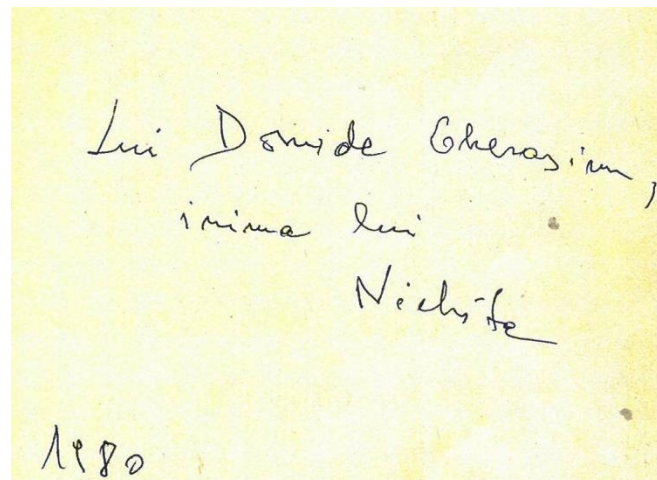 Lui Domide Gherasim,
inima lui
Nichita
1980